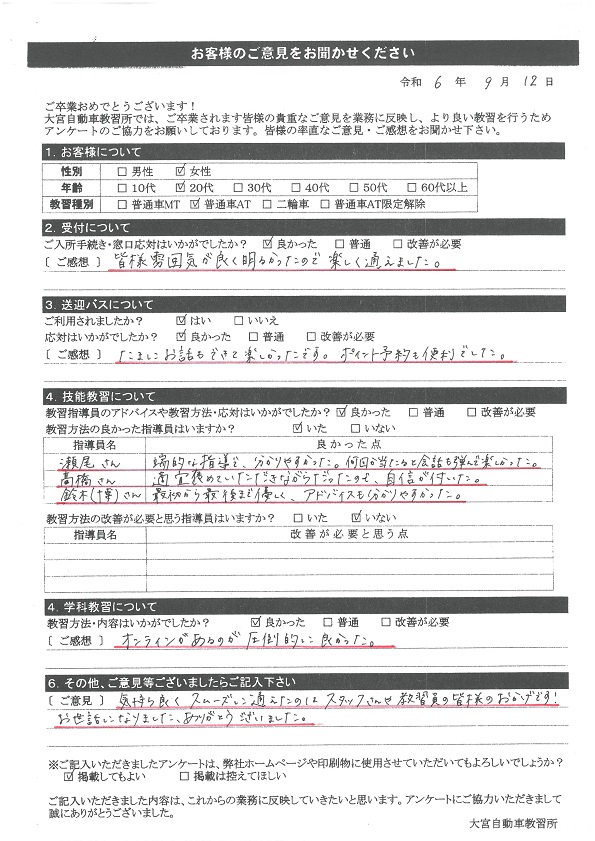 お客様のご意見をお聞かせください
令和 6 年 9 月 12 日
ご卒業おめでとうございます!
大宮自動車教習所では、ご卒業されます皆様の貴重なご意見を業務に反映し、より良い教習を行うため
アンケートのご協力をお願いしております。皆様の率直なご意見・ご感想をお聞かせ下さい。
1. お客様について
性別 □ 男性 ☑ 女性
年齢 □ 10代 ☑ 20代 □ 30代 □ 40代 □ 50代 □ 60代以上
教習種別 □ 普通車MT ☑ 普通車AT □ 二輪車 □ 普通車AT限定解除
2. 受付について
ご入所手続き・窓口応対はいかがでしたか? ☑ 良かった □ 普通 □ 改善が必要
〔 ご感想 〕 皆様雰囲気が良く明るかったので楽しく通えました。
3. 送迎バスについて
ご利用されましたか? ☑ はい □ いいえ
応対はいかがでしたか? ☑ 良かった □ 普通 □ 改善が必要
〔 ご感想 〕 たまにお話もできて楽しかったです。ポイント予約も便利でした。
4. 技能教習について
教習指導員のアドバイスや教習方法・応対はいかがでしたか? ☑ 良かった □ 普通 □ 改善が必要
教習方法の良かった指導員はいますか? ☑ いた □ いない
指導員名 良かった点
瀬尾さん 端的な指導で、分かりやすかった。何回か当たると会話も弾んで楽しかった。
高橋さん 適宜褒めていただきながらだったので、自信が付いた。
鈴木(博)さん 最初から最後まで優しく、アドバイスも分かりやすかった。
教習方法の改善が必要と思う指導員はいますか? □ いた ☑ いない
指導員名 改善が必要と思う点
4. 学科教習について
教習方法・内容はいかがでしたか? ☑ 良かった □ 普通 □ 改善が必要
〔 ご感想 〕 オンラインがあるのが圧倒的に良かった。
6. その他、ご意見等ございましたらご記入下さい
〔 ご意見 〕 気持ち良くスムーズに通えたのはスタッフさんや教習員の皆様のおかげです!
お世話になりました、ありがとうございました。
※ご記入いただきましたアンケートは、弊社ホームページや印刷物に使用させていただいてもよろしいでしょうか?
☑ 掲載してもよい □ 掲載は控えてほしい
ご記入いただきました内容は、これからの業務に反映していきたいと思います。アンケートにご協力いただきまして
誠にありがとうございました。
大宮自動車教習所